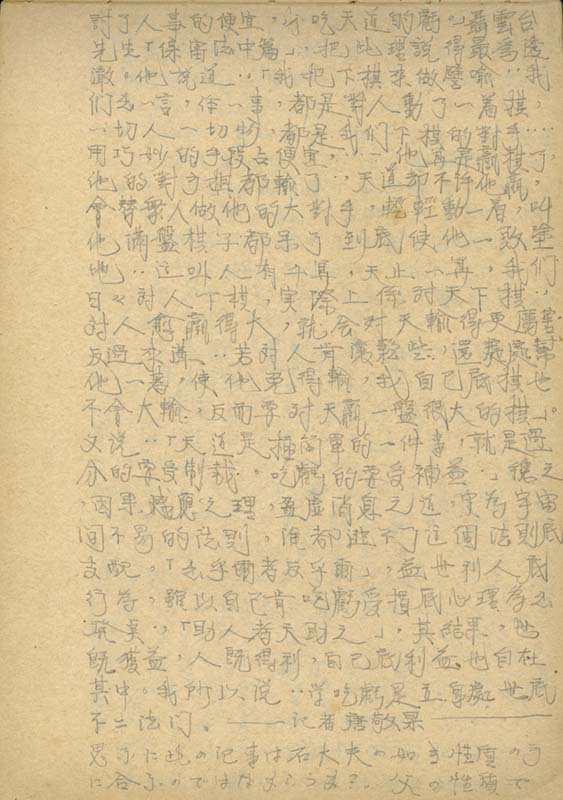 討了人事的便宜,必吃天道的虧。」聶雲台
先生「保富法」中篇,把此理說得最為透
澈。他說道:「我把下棋來做壓喻:我
們出一言,作一事,都是對人動了一着棋,
一切人一切物,都是我們下棋的對手……
用巧妙的手段占便宜,……他算是贏棋了,
他的對棋都輸了,天道却不许他贏,
會替眾人做他的大對手,輕輕動一着,叫
他滿盤棋子都呆了,到底使他一敗塗
地。…這叫人有千算,天止一算,我們
日々对人下棋,实際上係对天下棋,
对人愈贏得大,就会对天輸得更厲害。
反過來講,若对人肯讓鬆些,還處處幫
他一着,使他免得輸,我自己底棋也
不會大輸,反而要对天贏一盤很大的棋」。
又说:「天道是極简單的一件事,就是過
分的要受制裁,吃虧的要受補益。」總之
,因果感應之理,盈虛消息之道,实為宇宙
间不易的法则,谁都逃不了这個法则底
支配。「出乎爾者反乎爾」,益世利人底
行为,雖以自己肯吃虧受損底心理為出
發矣,「助人者天助之」,其結果,世
既獲益,人既得利,自己底利益也自在
其中。我所以说:学吃虧是立身處世底
不二法门。——记者唐敬杲——
思ふに此の记事は石大夫の如き性质のう
に合ふのではなからうか?。父の性質で